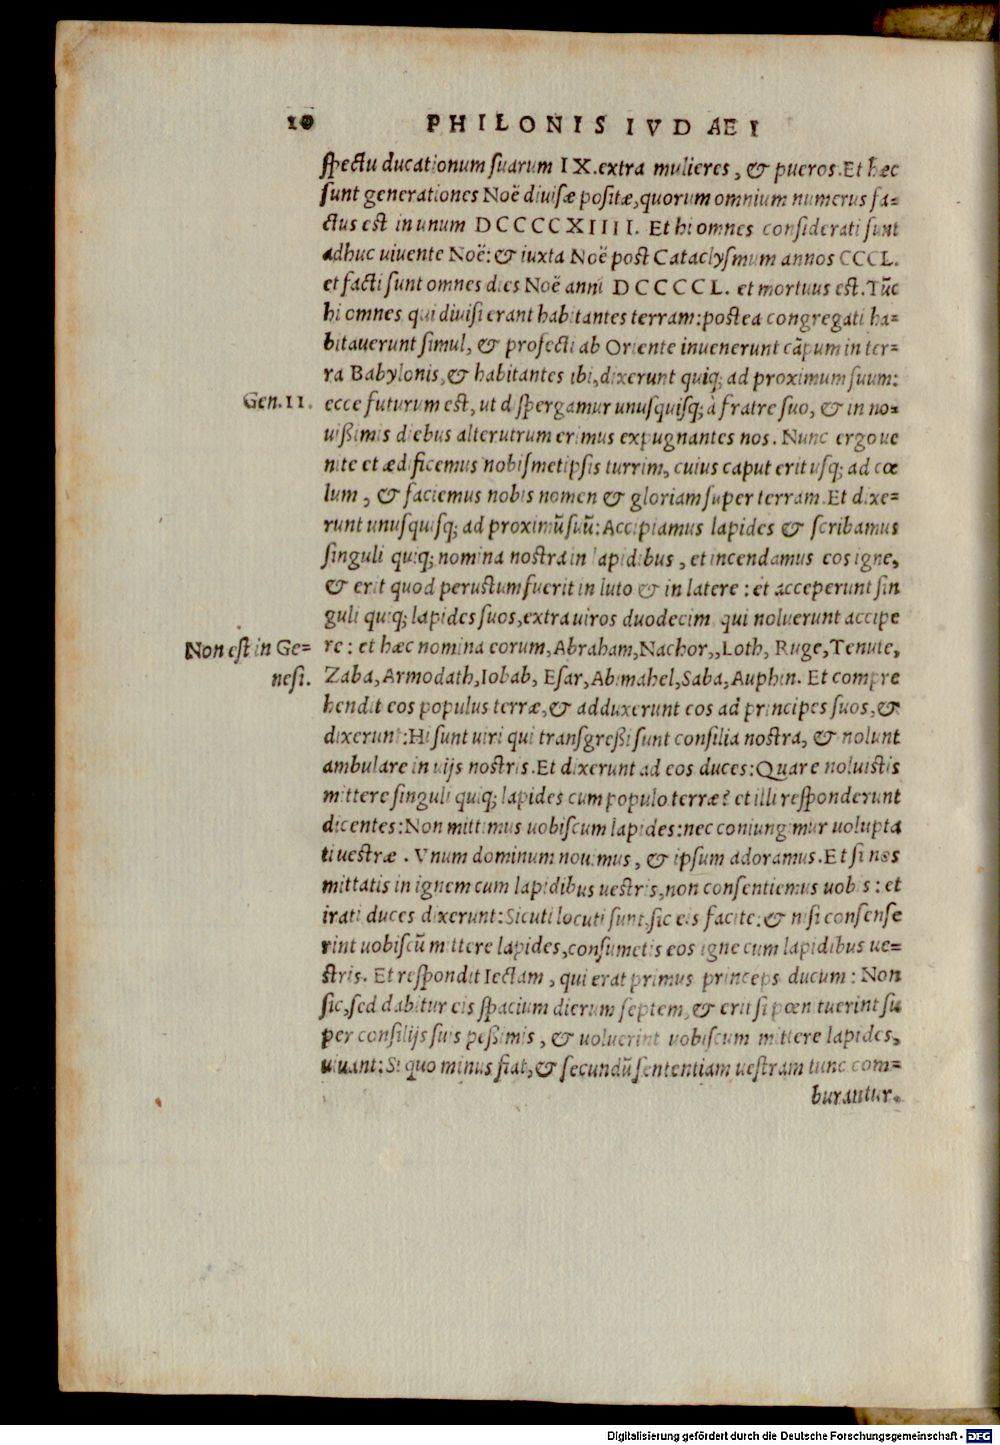 10 PHILONIS IVDAEI
spectu ducationum suarum IX. extra mulieres, & pueros. Et hæc
sunt generationes Noë diuisæ positæ, quorum omnium numerus fa=
ctus est in unum DCCCCXIIII. Et hi omnes considerati sunt
adhuc uiuente Noë: & iuxta Noë post Cataclysmum annos CCCL.
et facti sunt omnes dies Noë anni DCCCCL. et mortuus est. Tūc
hi omnes qui diuisi erant habitantes terram: postea congregati ha=
bitauerunt simul, & profecti ab Oriente inuenerunt cāpum in ter=
ra Babylonis, & habitantes ibi, dixerunt quiq; ad proximum suum:
Gen. 11. ecce futurum est, ut dispergamur unusquisq; à fratre suo, & in no=
uißimis diebus alterutrum erimus expugnantes nos. Nunc ergo ue
nite et ædificemus nobismetipsis turrim, cuius caput erit usq; ad cœ
lum, & faciemus nobis nomen & gloriam super terram. Et dixe=
runt unusquisq; ad proximū suū: Accipiamus lapides & scribamus
singuli quiq; nomina nostra in lapidibus, et incendamus eos igne,
& erit quod perustum fuerit in luto & in latere: et acceperunt sin
guli quiq; lapides suos, extra uiros duodecim qui noluerunt accipe
Non est in Ge= re: et hæc nomina eorum, Abraham, Nachor,, Loth, Ruge, Tenute,
nesi. Zaba, Armodath, Iobab, Esar, Abimahel, Saba, Auphin. Et compre
hendit eos populus terræ, & adduxerunt eos ad principes suos, &
dixerunt: Hi sunt uiri qui transgreßi sunt consilia nostra, & nolunt
ambulare in uijs nostris. Et dixerunt ad eos duces: Quare noluistis
mittere singuli quiq; lapides cum populo terræ? et illi responderunt
dicentes: Non mittimus uobiscum lapides: nec coniungimur uolupta
ti uestræ. Vnum dominum nouimus, & ipsum adoramus. Et si nos
mittatis in ignem cum lapidibus uestris, non consentiemus uobis: et
irati duces dixerunt: Sicuti locuti sunt, sic eis facite: & nisi consense
rint uobiscū mittere lapides, consumetis eos igne cum lapidibus ue=
stris. Et respondit Iectam, qui erat primus princeps ducum: Non
sic, sed dabitur eis spacium dierum septem, & erit si pœnituerint su
per consilijs suis peßimis, & uoluerint uobiscum mittere lapides,
uiuant: Si quo minus fiat, & secundū sententiam uestram tunc com=
burantur.
Digitalisierung gefördert durch die Deutsche Forschungsgemeinschaft - DFG